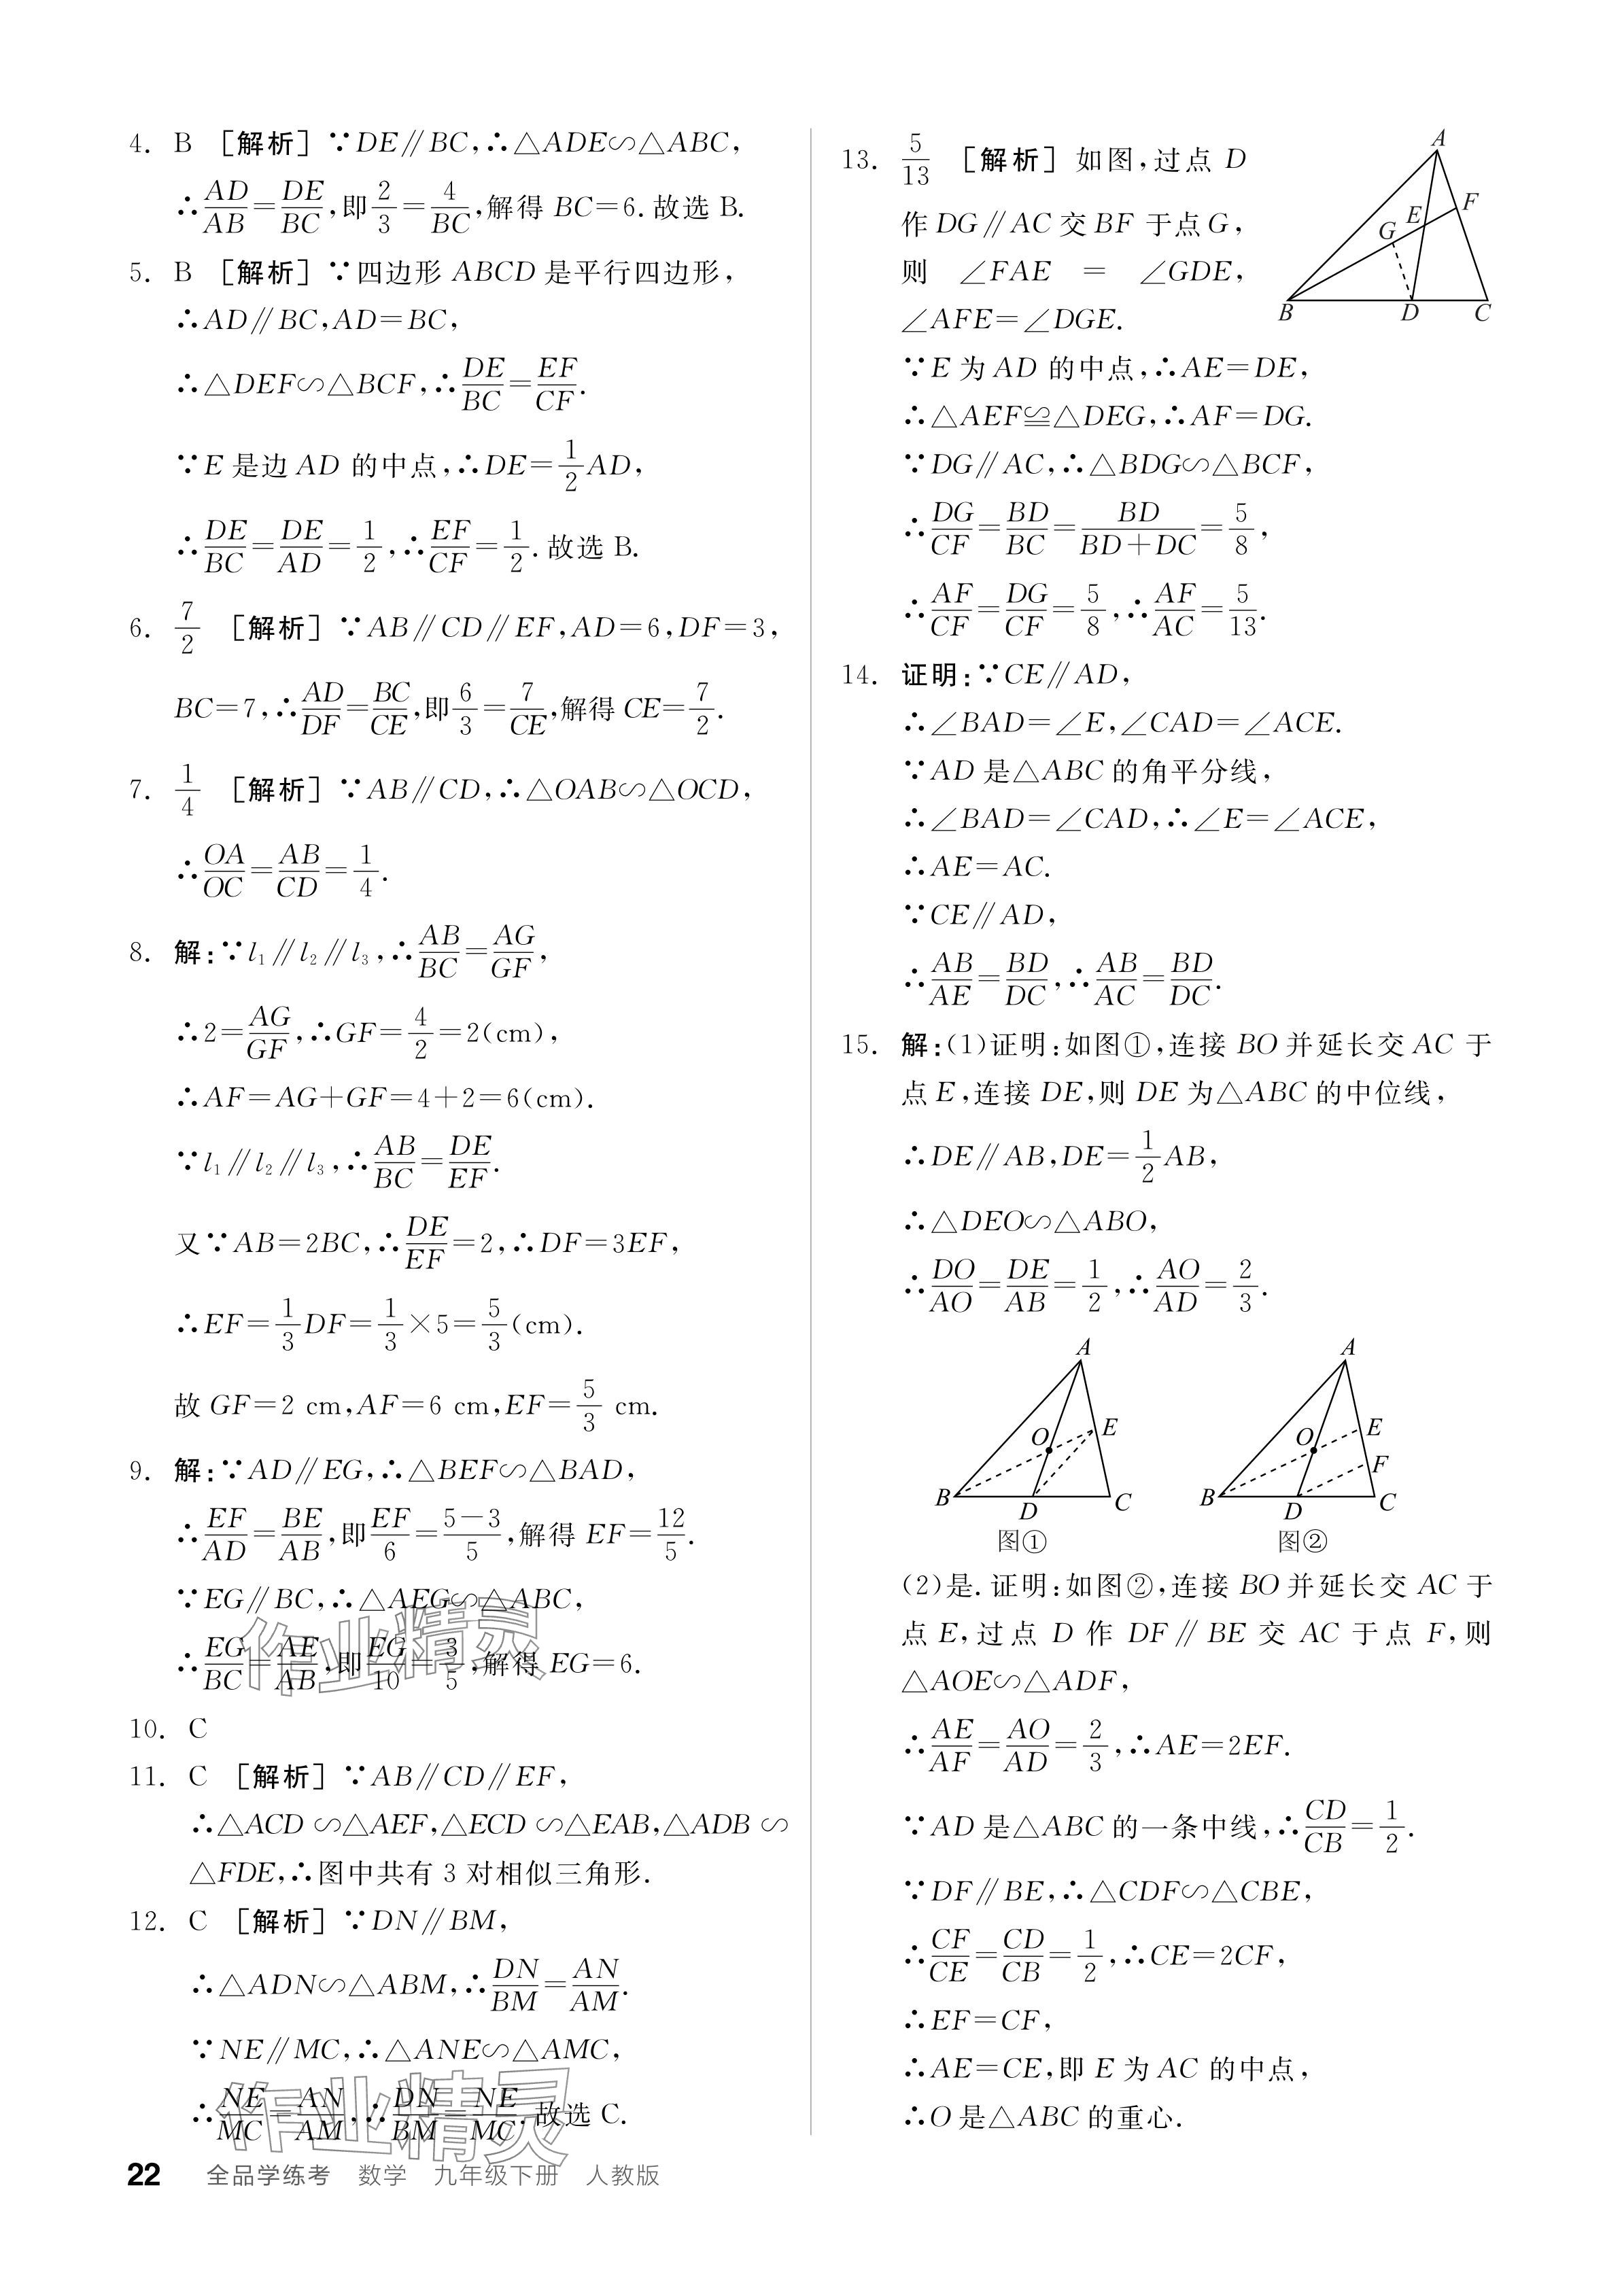 4. B [解析] ∵DE∥BC,∴△ADE∽△ABC,
∴AD/AB=DE/BC,即2/3=4/BC,解得 BC=6.故选 B.
5. B [解析] ∵四边形 ABCD 是平行四边形,
∴AD∥BC,AD=BC,
∴△DEF∽△BCF,∴DE/BC=EF/CF.
∵E 是边 AD 的中点,∴DE=1/2AD,
∴DE/BC=DE/AD=1/2,∴EF/CF=1/2.故选 B.
6. 7/2 [解析] ∵AB∥CD∥EF,AD=6,DF=3,
BC=7,∴AD/DF=BC/CE,即6/3=7/CE,解得 CE=7/2.
7. 1/4 [解析] ∵AB∥CD,∴△OAB∽△OCD,
∴OA/OC=AB/CD=1/4.
8. 解:∵l₁∥l₂∥l₃,∴AB/BC=AG/GF,
∴2=AG/GF,∴GF=4/2=2(cm),
∴AF=AG+GF=4+2=6(cm).
∵l₁∥l₂∥l₃,∴AB/BC=DE/EF.
又∵AB=2BC,∴DE/EF=2,∴DF=3EF,
∴EF=1/3DF=1/3×5=5/3(cm).
故 GF=2 cm,AF=6 cm,EF=5/3 cm.
9. 解:∵AD∥EG,∴△BEF∽△BAD,
∴EF/AD=BE/AB,即EF/6=5-3/5,解得 EF=12/5.
∵EG∥BC,∴△AEG∽△ABC,
∴EG/BC=AE/AB,即EG/10=3/5,解得 EG=6.
作业精灵
10. C
11. C [解析] ∵AB∥CD∥EF,
∴△ACD ∽△AEF,△ECD ∽△EAB,△ADB ∽
△FDE,∴图中共有 3 对相似三角形.
12. C [解析] ∵DN∥BM,
∴△ADN∽△ABM,∴DN/BM=AN/AM.
∵NE∥MC,∴△ANE∽△AMC,
∴NE/MC=AN/AM,∴DN/BM=NE/MC.故选 C.
作业精灵
13. 5/13 [解析] 如图,过点 D
作 DG∥AC 交 BF 于点 G,
则 ∠FAE = ∠GDE,
∠AFE=∠DGE.
A
F
E
G
B
D
C
∵E 为 AD 的中点,∴AE=DE,
∴△AEF≌△DEG,∴AF=DG.
∵DG∥AC,∴△BDG∽△BCF,
∴DG/CF=BD/BC=BD/BD+DC=5/8,
∴AF/CF=DG/CF=5/8,∴AF/AC=5/13.
14. 证明:∵CE∥AD,
∴∠BAD=∠E,∠CAD=∠ACE.
∵AD 是△ABC 的角平分线,
∴∠BAD=∠CAD,∴∠E=∠ACE,
∴AE=AC.
∵CE∥AD,
∴AB/AE=BD/DC,∴AB/AC=BD/DC.
15. 解:(1)证明:如图①,连接 BO 并延长交 AC 于
点 E,连接 DE,则 DE 为△ABC 的中位线,
∴DE∥AB,DE=1/2AB,
∴△DEO∽△ABO,
∴DO/AO=DE/AB=1/2,∴AO/AD=2/3.
A
O
E
B
D
C
图①
A
O
E
F
B
D
C
图②
(2)是.证明:如图②,连接 BO 并延长交 AC 于
点 E,过点 D 作 DF∥BE 交 AC 于点 F,则
△AOE∽△ADF,
∴AE/AF=AO/AD=2/3,∴AE=2EF.
∵AD 是△ABC 的一条中线,∴CD/CB=1/2.
∵DF∥BE,∴△CDF∽△CBE,
∴CF/CE=CD/CB=1/2,∴CE=2CF,
∴EF=CF,
∴AE=CE,即 E 为 AC 的中点,
∴O 是△ABC 的重心.
22 全品学练考 数学 九年级下册 人教版